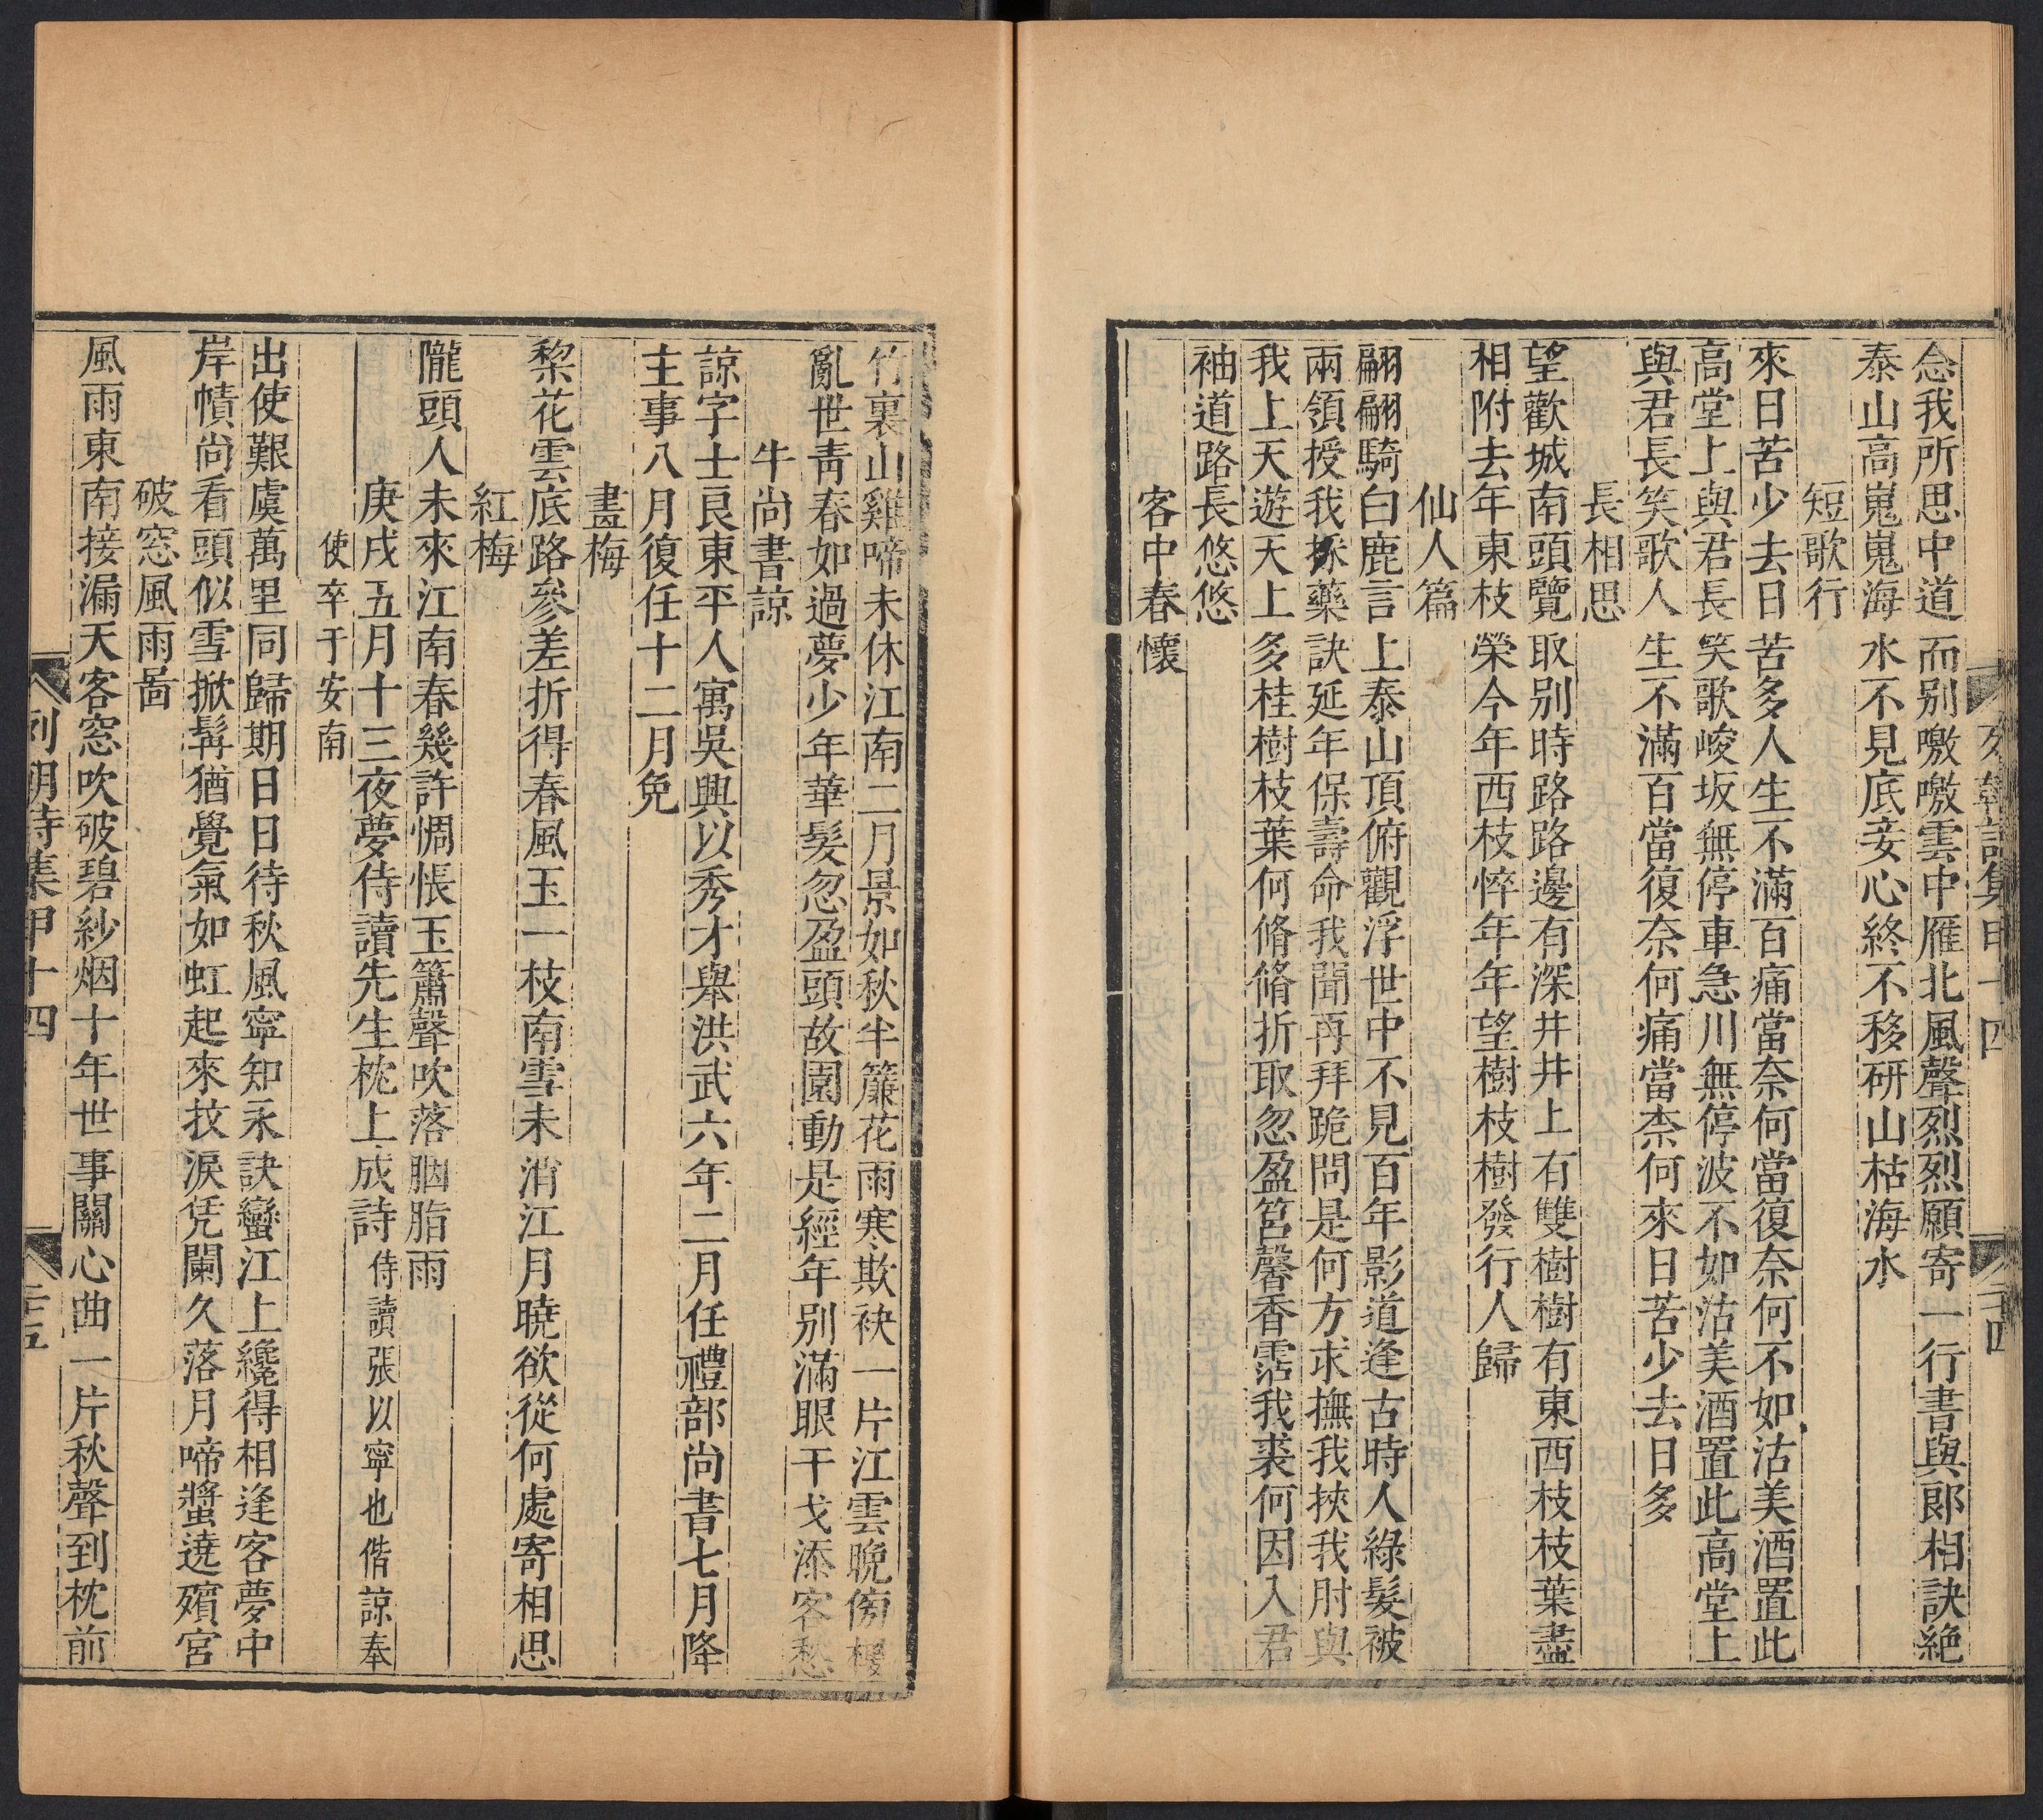 念我所思中道而别噭噭雲中雁北風聲烈烈願寄一行書與郎相訣絶
泰山高嵬嵬海水不見底妾心終不移研山枯海水
短歌行
來日苦少去日苦多人生不滿百痛當奈何當復奈何不如沽美酒置此
高堂上與君長笑歌峻坂無停車急川無停波不如沽美酒置此高堂上
與君長笑歌人生不滿百當復奈何痛當柰何來日苦少去日多
長相思
望歡城南頭覽取别時路路邊有深井井上石雙樹樹有東西枝枝葉盡
相附去年東枝榮今年西枝悴年年望樹枝樹發行人歸
仙人篇
翩翩騎白鹿言上泰山頂俯觀浮世中不見百年影道逢古時人綠髮被
兩領授我採藥訣延年保壽命我聞再拜跪問是何方求撫我挾我肘與
我上天遊天上多桂樹枝葉何脩脩折取忽盈筥馨香霑我裘何因入君
袖道路長悠悠
客中春懷
竹裏山雞啼未休江南二月景如秋半簾花雨寒欺袂一片江雲晚傍樓
亂世青春如過夢少年華髮忽盈頭故園動是經年别滿眼干戈添客愁
牛尚書諒
諒字士良東平人寓吳興以秀才舉洪武六年二月任禮部尚書七月降
主事八月復任十二月免
畫梅
棃花雲底路參差折得春風玉一枝南雪未消江月曉欲從何處寄相思
紅梅
隴頭人未來江南春幾許惆悵玉簫聲吹落胭脂雨
庚戌五月十三夜夢侍讀先生枕上成詩侍讀張以寧也偕諒奉
使卒于安南
出使艱虞萬里同歸期日日待秋風寧知永訣蠻江上纔得相逢客夢中
岸幘尚看頭似雪掀髯猶覺氣如虹起來抆淚凭闌久落月啼螿遶殯宮
破窓風雨啚
風雨東南接漏天客窓吹破碧紗烟十年世事關心曲一片秋聲到枕前
列朝詩集甲十四
二十五